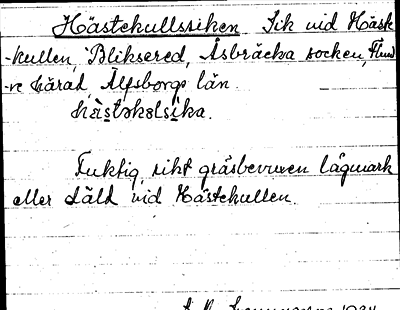 Hästekullssiken Sik vid Häste
-kullen, Bliksered, Åsbräcka socken, Flund
-re härad, Älfsborgs län.
hàstəkəlsika.
Fuktig, rikt gräsbevuxen lågmark
eller däld vid Hästekullen.